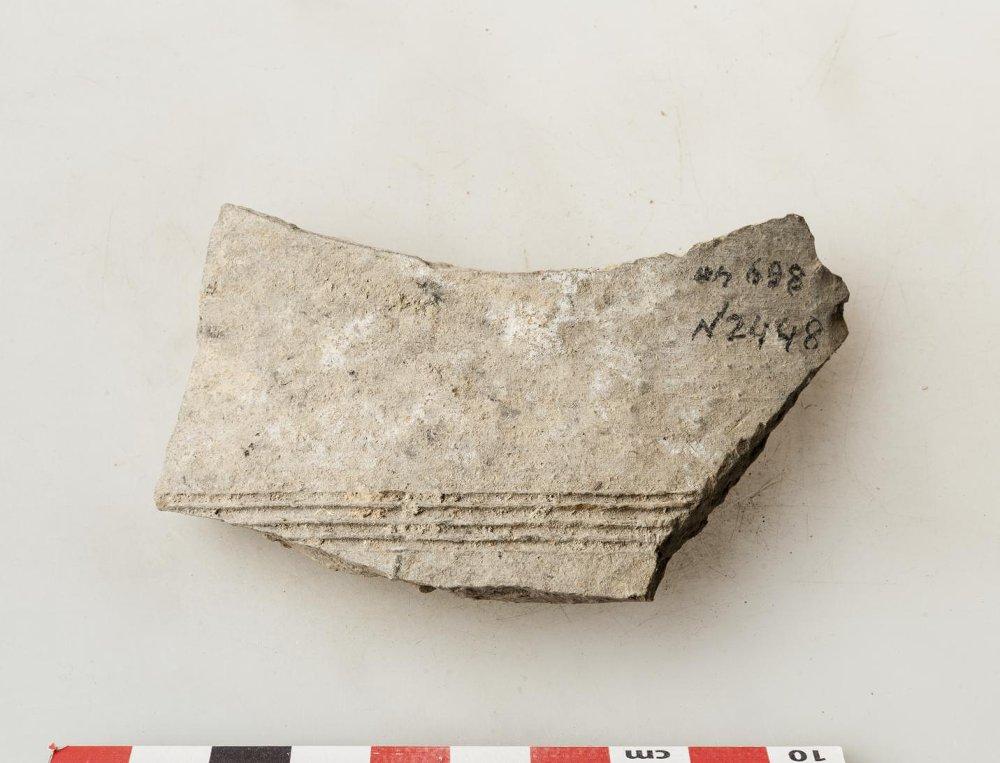 698
N2448
cm
10